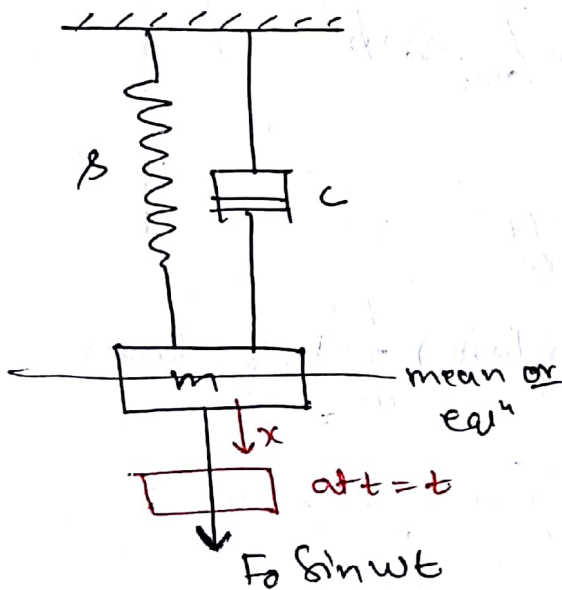 s
c
m
mean or
eqⁿ
x
at t = t
F₀ Sin wt